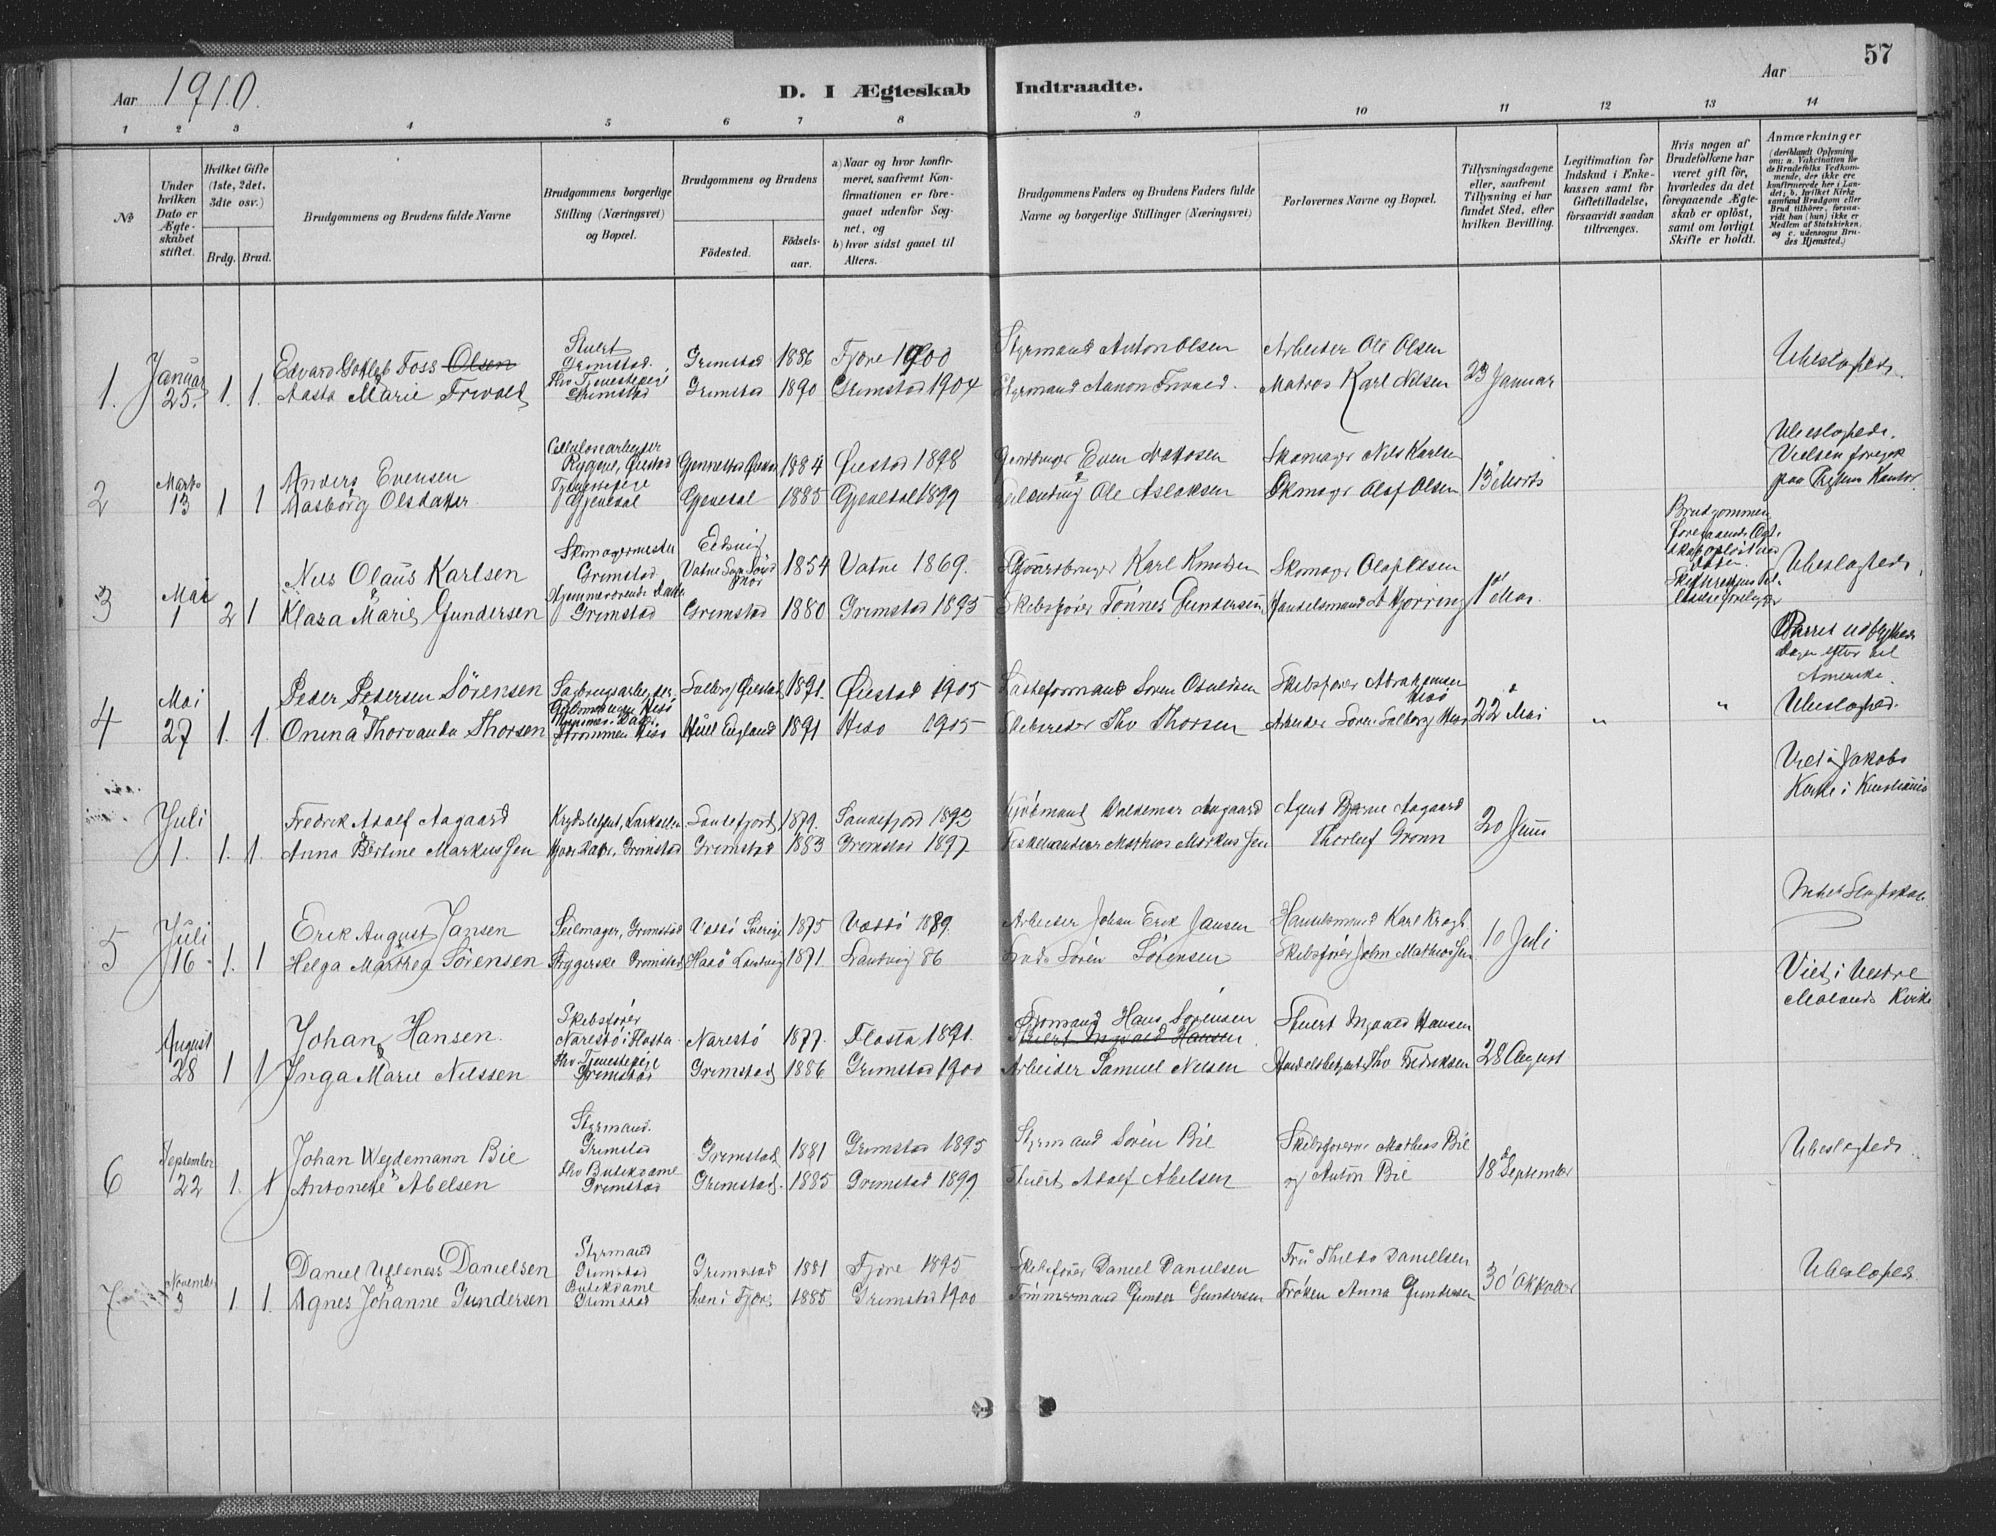 57
Aar 1910.
D. I Ægteskab Indtraadte.
Aar
1 2 3 4 5 6 7 8 9 10 11 12 13 14
No
Under hvilken Dato er Ægteskabet stiftet.
Hvilket Gifte (1ste, 2det, 3die osv.)
Brdg. Brud.
Brudgommens og Brudens fulde Navne
Brudgommens borgerlige Stilling (Næringsvei) og Bopæl.
Brudgommens og Brudens
Födested.
Födselsaar.
a) Naar og hvor konfirmeret, saafremt Konfirmationen er foregaaet udenfor Sognet, og
b) hvor sidst gaaet til Alters.
Brudgommens Faders og Brudens Faders fulde Navne og borgerlige Stillinger (Næringsvei)
Forlovernes Navne og Bopæl.
Tillysningsdagene eller, saafremt Tillysning ei har fundet Sted, efter hvilken Bevilling.
Legitimation for Indskud i Enkekassen samt for Giftetilladelse, forsaavidt saadan tiltrænges.
Hvis nogen af Brudefolkene har været gift för, hvorledes da det foregaaende Ægteskab er oplöst, samt om lovligt Skifte er holdt.
Anmærkninger
(deriblandt Oplysning om: a. Vakcination for de Brudefolks Vedkommende, der ikke ere konfirmerede her i Landet; b. hvilket Kirkesamfund Brudgom eller Brud tilhörer, forsaavidt han (hun) ikke er Medlem af Statskirken, og c. udensogns Brudes Hjemsted.)
1. Januar 25. 1. 1.
Edvard Foss Olsen Stuert Grimstad. Grimstad 1886 Fjære 1900 Styrmand Anton Olsen Arbeider Ole Olsen 23 Januar Ubeslægtede.
Aasta Marie Frivold Grimstad Grimstad 1890 Grimstad 1904 Styrmand Aanon Frivold. Matros Karl Nilsen
2 Marts 13 1 1
Anders Evensen Cellulosearbeider Rygene, Øiestad 1884 Øiestad 1898 Even Skomager Nils Karlsen 13 Marts Ubeslægtede. Vielsen foregik paa
Aasborg Olsdatter Gjevedal Gjevedal 1885 Gjevedal 1899 Ole Aslaksen Skomager Olaf Olsen
3 Mai 1 2 1
Nils Olaus Karlsen Skomagermester Grimstad Vatne 1854 Vatne 1869. Karl Knudsen Skomager Olaf Olsen 1 Mai. Brudgommens foregaaende Ubeslægtede.
Klara Marie Gundersen Grimstad Grimstad 1880 Grimstad 1895 Skibsfører Tönnes Gundersen Handelsmand Hjorring
4 Mai 27 1. 1.
Peder Pedersen Sörensen Sagbrugsarbeider Solberg Øiestad 1891. Øiestad 1905 Skibsfører Abrahamsen Hisö 22 Mai " " Parret udflyttede Dagen efter til Amerika. Ubeslægtede.
Onena Thorvanda Thorsen Hisö Hull England 1891 Hisö 1905 Skibsreder Thv Thorsen Arbeider Sören Solberg Hisö
Juli 1. 1. 1.
Fredrik Adolf Aagaard Sandefjord 1879. Sandefjord 1893 Kjöbmand Valdemar Aagaard Agent Bjarne Aagaard 20 Juni Viet i Jakobs Kirke i Kristiania
Anna Bertine Markussen Grimstad Grimstad 1883 Grimstad 1897 Mathias Markussen Thorleif Gronn
5 Juli 16 1. 1
Erik August Jansen Seilmager, Grimstad Vattö Sverige 1875 Vattö 1889. Arbeider Johan Erik Jansen Handelsmand Karl Kragh 10 Juli Intet Slægtskab
Helga Sörensen Strygerske Grimstad Landvig 1871 Landvig 86 Sören Sörensen Skibsfører John Mathiassen
August 28 1 1
Johan Hansen. Skibsfører Narestö i Flosta Narestö 1877. Flosta 1891. Hans Sörensen Stuert Ingvald Hansen Stuert Ingvald Hansen 28 August Viet i Vestre Molands Kirke
Inga Marie Nilssen Grimstad Grimstad 1886 Grimstad 1900 Arbeider Samuel Nilsen Thv Fredriksen
6 September 22 1. 1
Johan Weydemann Bie Styrmand. Grimstad Grimstad 1881 Grimstad 1895 Styrmand Sören Bie Skibsförerne Mathias Bie 18 September Ubeslægtede.
Antonette Abelsen Thv Butikdame Grimstad Grimstad. 1885 Grimstad 1899 Stuert Adolf Abelsen og Anton Bie
7 November 3 1. 1.
Daniel Ugleness Danielsen Styrmand Grimstad Grimstad 1881 Fjære 1895 Skibsfører Daniel Danielsen Fru Danielsen 30 Oktober Ubeslægtede.
Agnes Johanne Gundersen Butikdame Grimstad 1885 Grimstad 1900 Tömmermand Gunder Gundersen Fröken Anna Gundersen